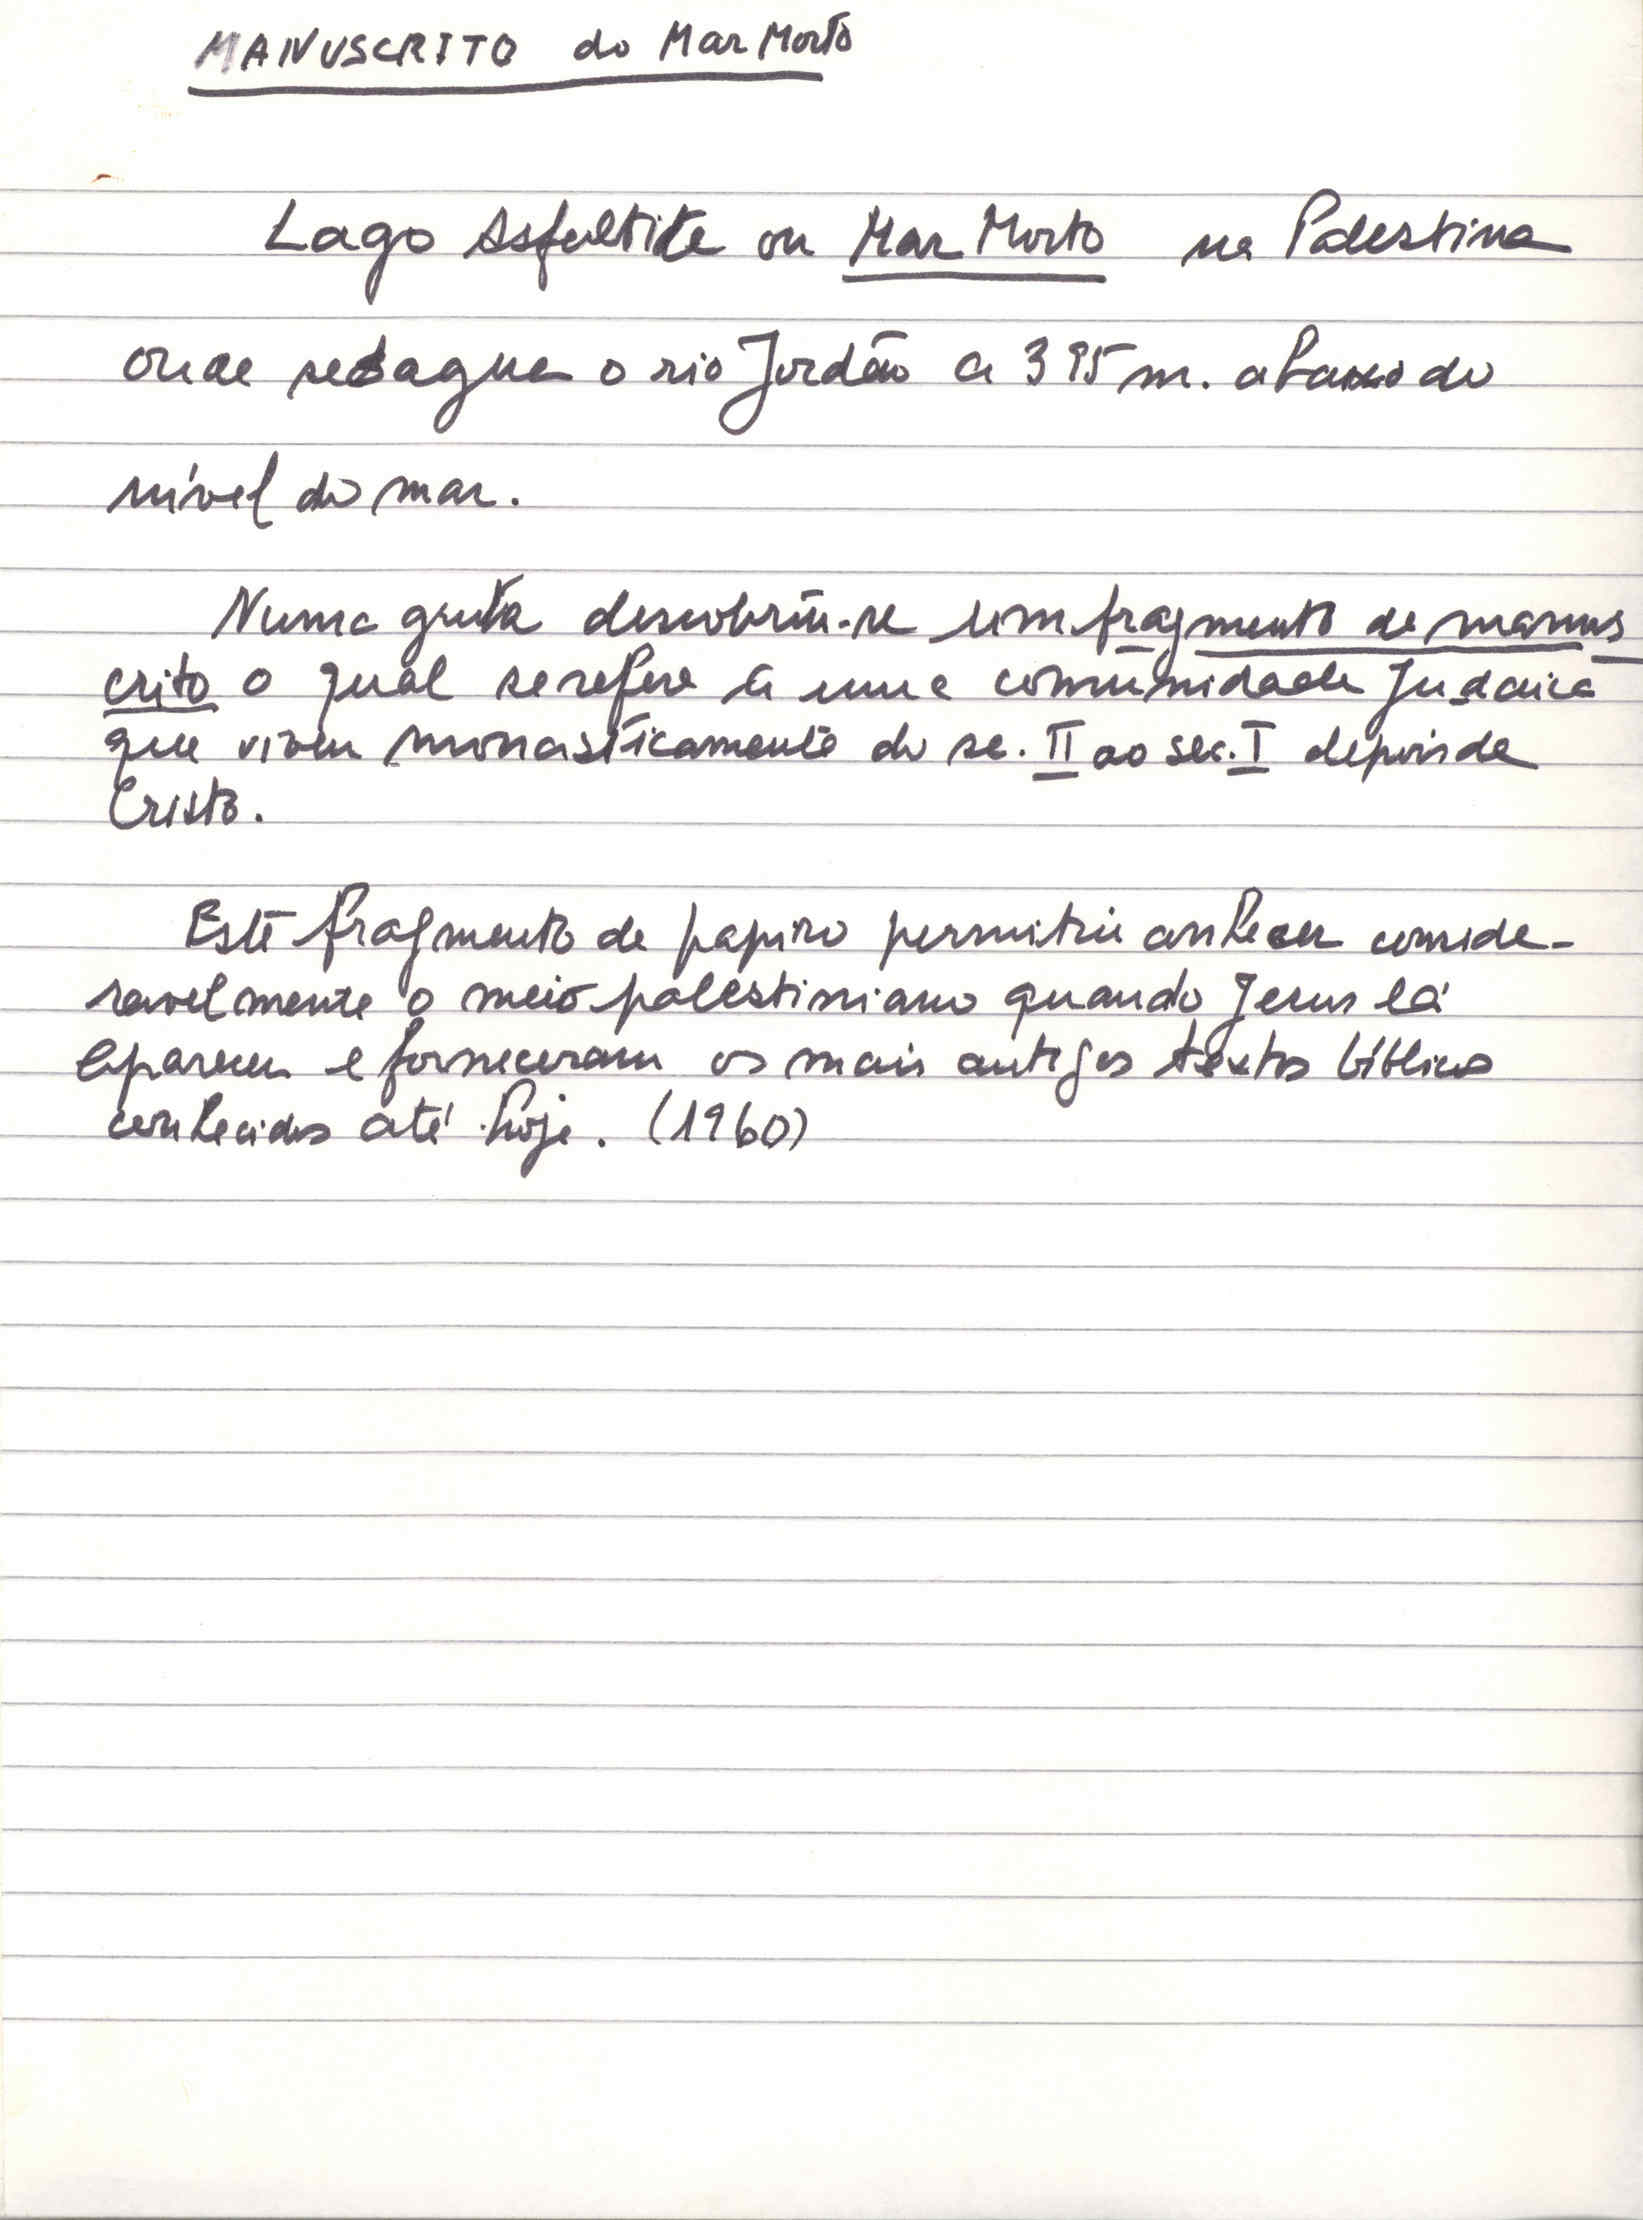 MANUSCRITO do Mar Morto
Lago Asfaltite ou Mar Morto na Palestina
onde sedagua o rio Jordão a 395 m. abaixo do
nível do mar.
Numa gruta descobriu-se um fragmento de manus
crito o qual se refere a uma comunidade Judaica
que viveu monasticamente do se. II ao sec. I depois de
Cristo.
Este fragmento de papiro permitiu conhecer conside-
ravelmente o meio palestiniano quando Jesus lá
apareceu e forneceram os mais antigos textos bíblicos
conhecidos até hoje. (1960)